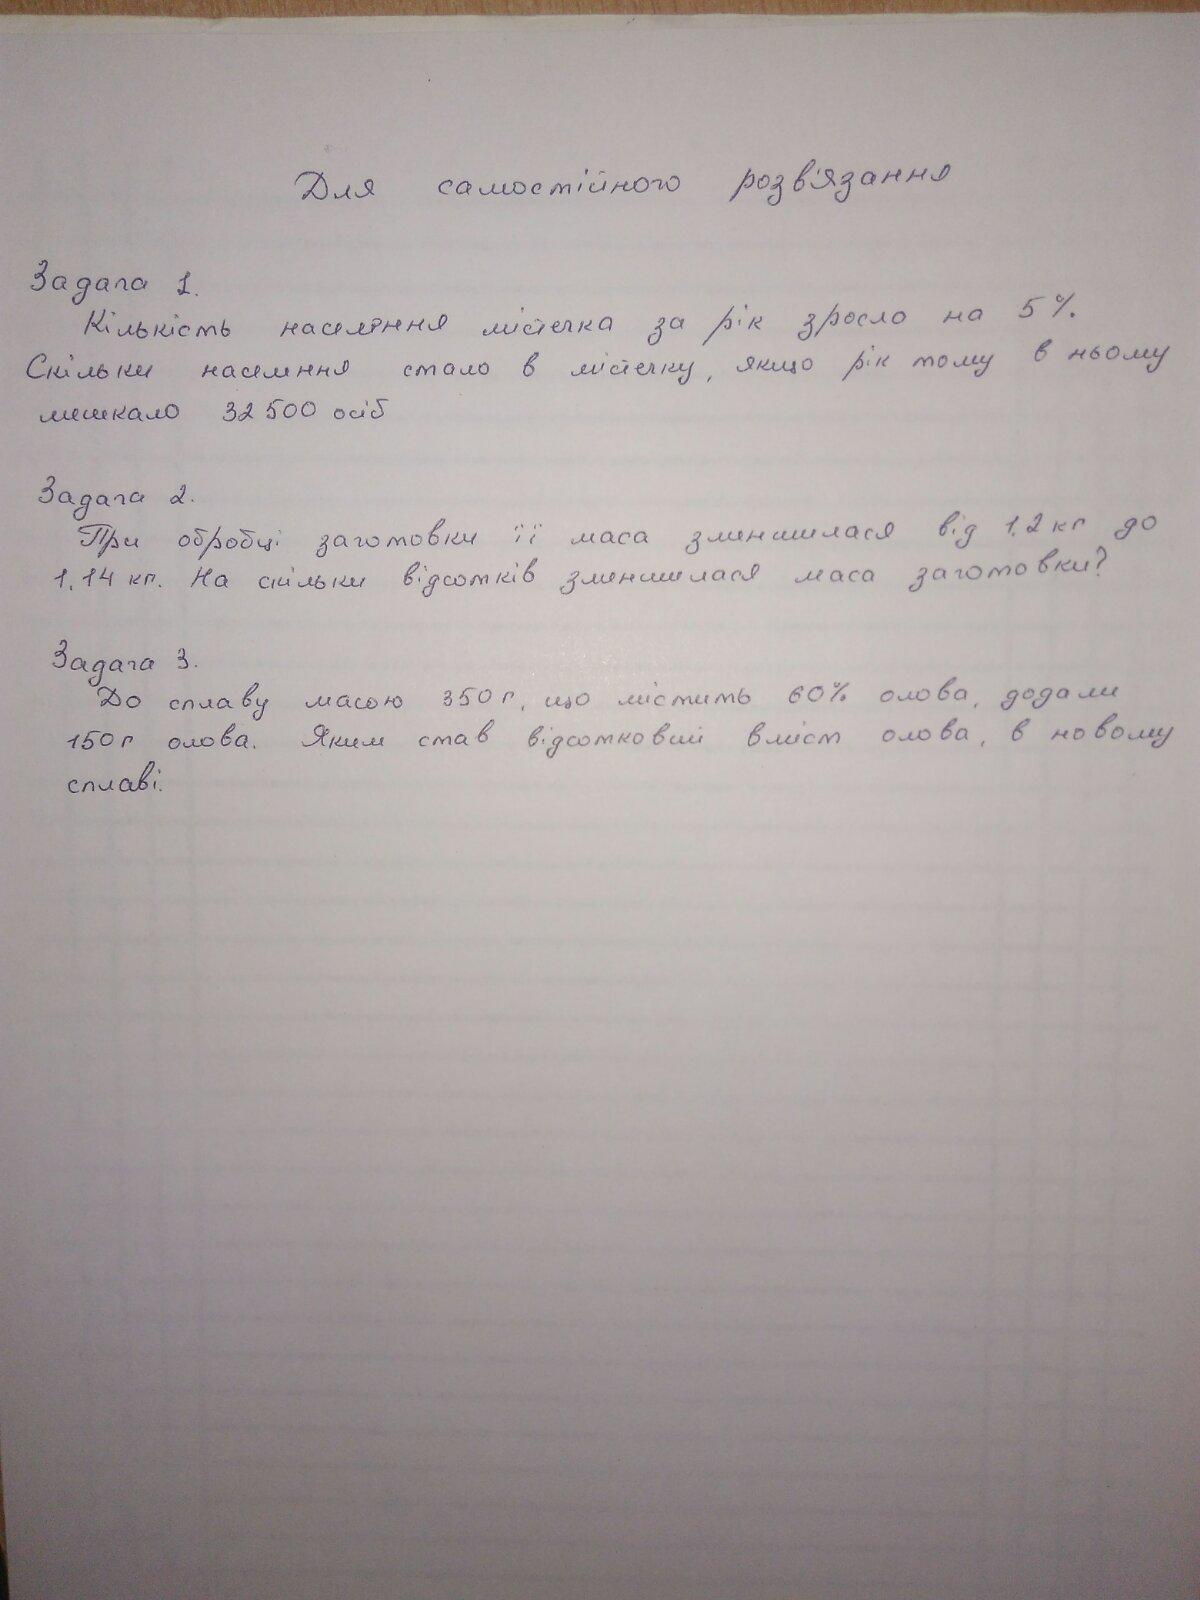 Для самостійного розв'язання
Задача 1.
Кількість населення містечка за рік зросло на 5%.
Скільки населення стало в містечку, якщо рік тому в ньому
мешкало 32 500 осіб
Задача 2.
При обробці заготовки її маса зменшилася від 1,2 кг до
1,14 кг. На скільки відсотків зменшилася маса заготовки?
Задача 3.
До сплаву масою 350 г, що містить 60% олова, додали
150 г олова. Яким став відсотковий вміст олова, в новому
сплаві.